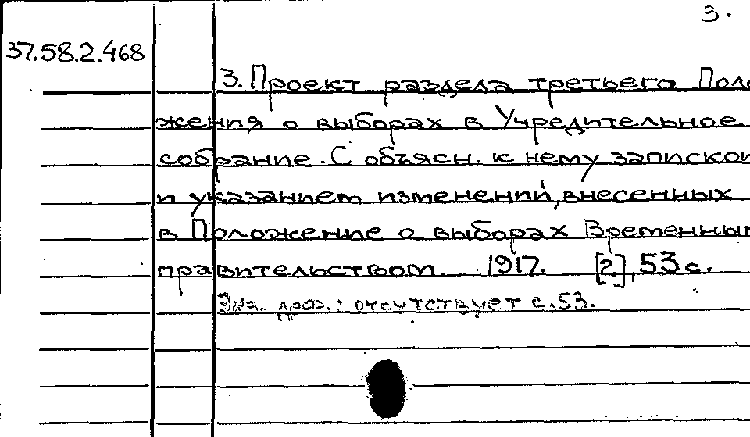 3.
37.58.2.468
3. Проект раздела третьего Поло
жения о выборах в Учредительное
собрание. С объясн. к нему запиской
и указанием изменений, внесенных
в Положение о выборах Временным
правительством. 1917. [2], 53 с.
Экз. : отсутствует с. 53.